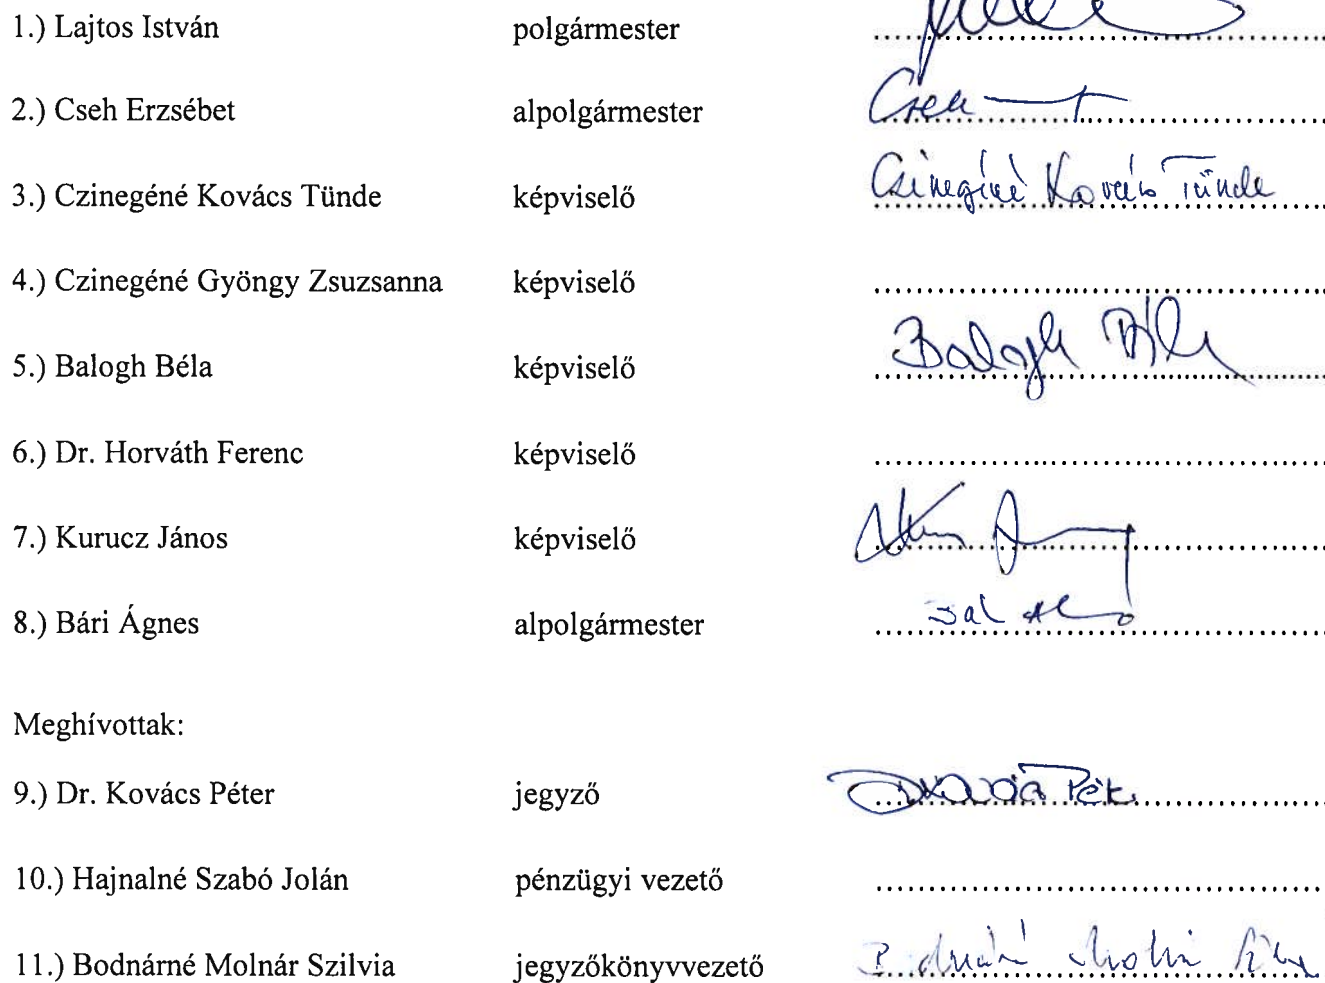 1.) Lajtos István polgármester
2.) Cseh Erzsébet alpolgármester Cseh
3.) Czinegéné Kovács Tünde képviselő Czinegéné Kovács Tünde
4.) Czinegéné Gyöngy Zsuzsanna képviselő
5.) Balogh Béla képviselő Balogh Béla
6.) Dr. Horváth Ferenc képviselő
7.) Kurucz János képviselő
8.) Bári Ágnes alpolgármester
Meghívottak:
9.) Dr. Kovács Péter jegyző
10.) Hajnalné Szabó Jolán pénzügyi vezető
11.) Bodnárné Molnár Szilvia jegyzőkönyvvezető